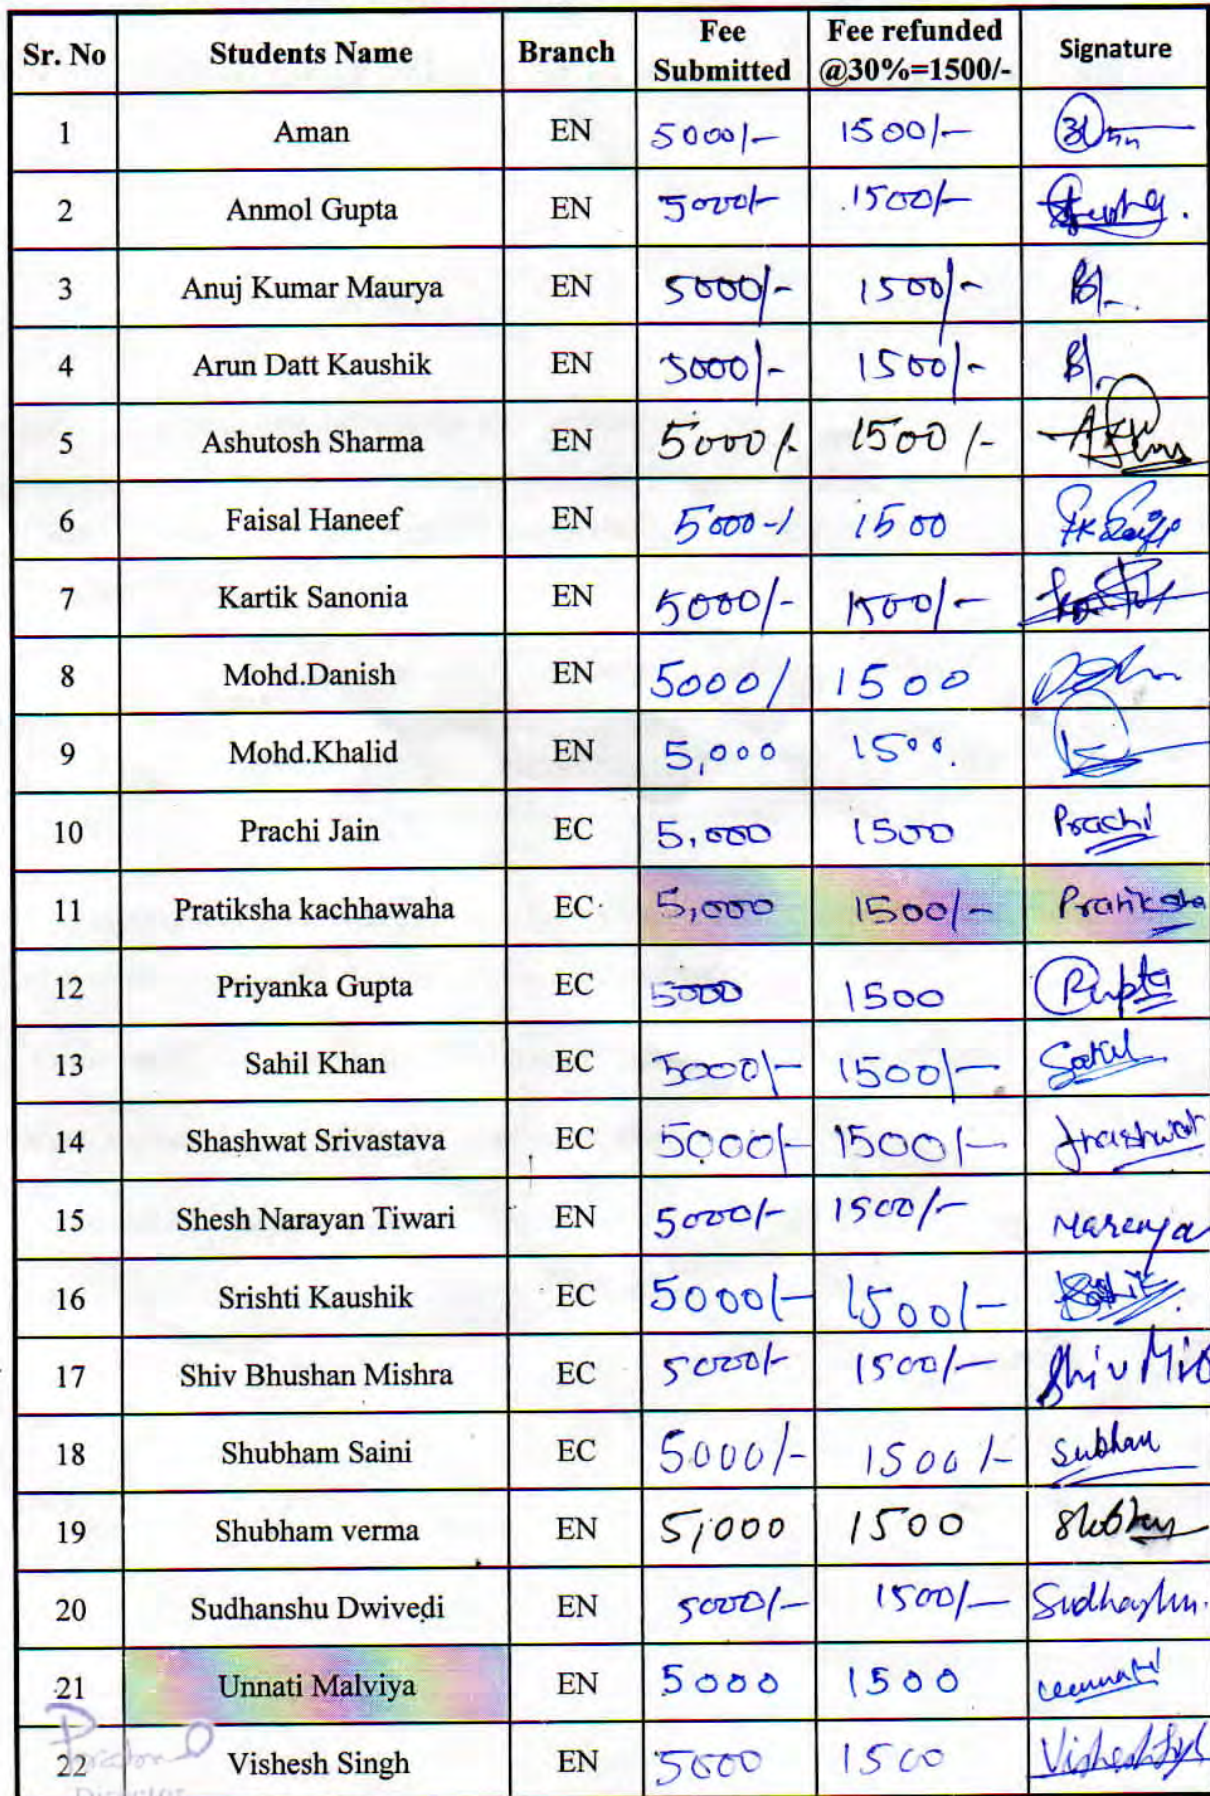 Sr. No Students Name Branch Fee Submitted Fee refunded @30%=1500/- Signature
1 Aman EN 5000/- 1500/-
2 Anmol Gupta EN 5000/- 1500/-
3 Anuj Kumar Maurya EN 5000/- 1500/-
4 Arun Datt Kaushik EN 5000/- 1500/-
5 Ashutosh Sharma EN 5000/- 1500/-
6 Faisal Haneef EN 5000-/ 1500
7 Kartik Sanonia EN 5000/- 1500/-
8 Mohd.Danish EN 5000/ 1500
9 Mohd.Khalid EN 5,000 1500
10 Prachi Jain EC 5,000 1500 Prachi
11 Pratiksha kachhawaha EC 5,000 1500/- Pratiksha
12 Priyanka Gupta EC 5000 1500
13 Sahil Khan EC 5000/- 1500/- Sahil
14 Shashwat Srivastava EC 5000/- 1500/- Shashwat
15 Shesh Narayan Tiwari EN 5000/- 1500/-
16 Srishti Kaushik EC 5000/- 1500/-
17 Shiv Bhushan Mishra EC 5000/- 1500/- Shiv
18 Shubham Saini EC 5000/- 1500/-
19 Shubham verma EN 5,000 1500
20 Sudhanshu Dwivedi EN 5000/- 1500/- Sudhanshu
21 Unnati Malviya EN 5000 1500
22 Vishesh Singh EN 5000 1500
Director